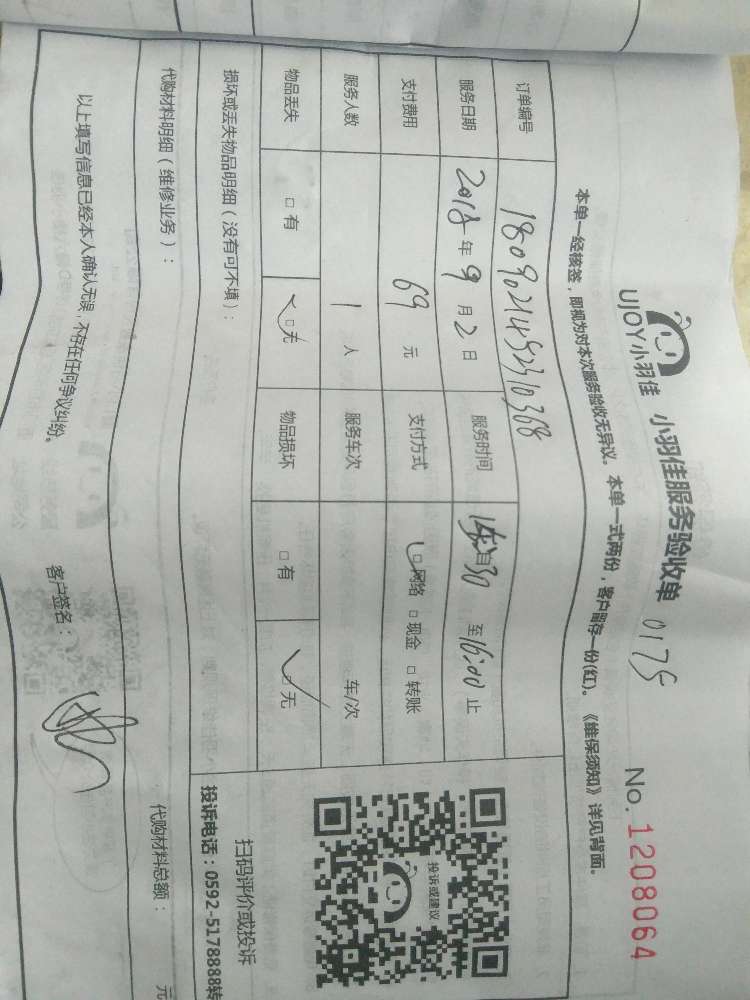 UJOY小羽佳 小羽佳服务验收单 0175 No. 1208064
本单一经核签，即视为对本次服务验收无异议。本单一式两份，客户留存一份(红)。《维保须知》详见背面。
订单编号 1809021452310368
服务日期 2018年9月2日 服务时间 自 30 至 16:00 止
支付费用 69 元 支付方式 □网络 □现金 □转账
服务人数 1 人 服务车次 车/次
物品丢失 □有 □无 物品损坏 □有 □无
损坏或丢失物品明细（没有可不填）：
投诉或建议
扫码评价或投诉
投诉电话：0592-5178888转
代购材料明细（维修业务）： 代购材料总额： 元
以上填写信息已经本人确认无误，不存在任何争议纠纷。 客户签名：